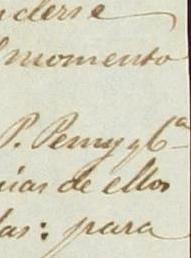 nderse
momento
P. Perny y 6ª
cias de ellos
das: para